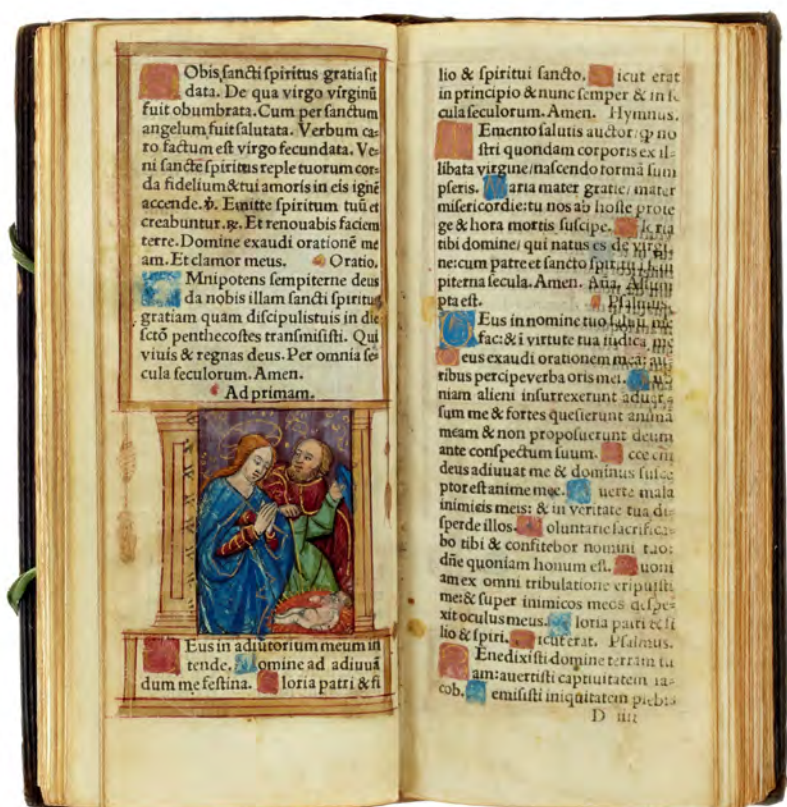 Obis sancti spiritus gratia sit
data. De qua virgo virginū
fuit obumbrata. Cum per sanctum
angelum fuit salutata. Verbum ca-
ro factum est virgo fecundata. Ve-
ni sancte spiritus reple tuorum cor-
da fidelium & tui amoris in eis ignē
accende. ℣. Emitte spiritum tuū et
creabuntur. ℟. Et renouabis faciem
terre. Domine exaudi orationē me
am. Et clamor meus. Oratio.
Mnipotens sempiterne deus
da nobis illam sancti spiritus
gratiam quam discipulis tuis in die
sctō penthecostes transmisisti. Qui
viuis & regnas deus. Per omnia se-
cula seculorum. Amen.
Ad primam.
Eus in adiutorium meum in
tende. Domine ad adiuuā
dum me festina. Gloria patri & fi
lio & spiritui sancto. Sicut erat
in principio & nunc semper & in se
cula seculorum. Amen. Hymnus.
Emento salutis auctor: ꝙ no
stri quondam corporis ex il-
libata virgine/nascendo formā sum
pseris. Maria mater gratie/mater
misericordie: tu nos ab hoste prote
ge & hora mortis suscipe. Gloria
tibi domine/qui natus es de virgi
ne: cum patre et sancto spiritu in sem
piterna secula. Amen. Aña. Assum
pta est. Psalmus.
Eus in nomine tuo saluū me
fac: & ī virtute tua iudica me
Deus exaudi orationem meā: au-
ribus percipe verba oris mei. Quo
niam alieni insurrexerunt aduers
sum me & fortes quesierunt animā
meam & non proposuerunt deum
ante conspectum suum. Ecce em̄
deus adiuuat me & dominus susce
ptor est anime mee. Auerte mala
inimicis meis: & in veritate tua di-
sperde illos. Voluntarie sacrifica-
bo tibi & confitebor nomini tuo:
dñe quoniam bonum est. Quoni
am ex omni tribulatione eripuisti
me: & super inimicos meos despe-
xit oculus meus. Gloria patri & fi
lio & spiri. Sicut erat. Psalmus.
Enedixisti domine terram tu
am: auertisti captiuitatem ia-
cob. Remisisti iniquitatem plebis
D iiii